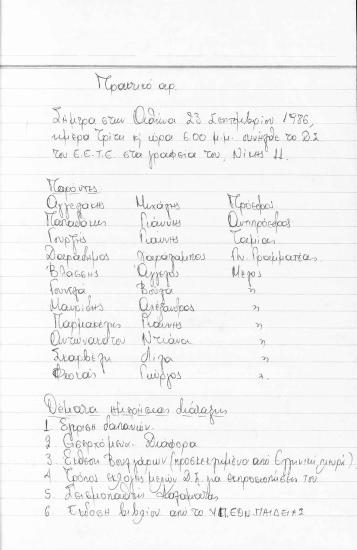 Πρακτικό αρ.
Σήμερα στην Αθήνα 23 Σεπτεμβρίου 1986,
ημέρα Τρίτη κι ώρα 6.00 μ.μ. συνήλθε το Δ.Σ
του Ε.Ε.Τ.Ε στα γραφεία του, Νίκης 11.
Παρόντες
Αγγελάκης Μιχάλης Πρόεδρος
Παπαδάκης Γιάννης Αντιπρόεδρος
Γουρζής Γιάννης Ταμίας
Δαραδήμος Χαράλαμπος Γεν. Γραμματέας
Βλάσσης Άγγελος Μέλος
Γουνελα Βούλα "
Μαυρίδης Αλέξανδρος "
Παρμακέλης Γιάννης "
Αντωνακάτου Ντιάνα "
Σκαρβέλη Λίζα "
Φωτιάς Γιώργος "
Θέματα ημερήσιας διάταξης
1 Έγκριση δαπανών.
2 Εισερχόμενα. Διάφορα
3. Έκθεση Βουλγάρων (προσκεκλημένο από Ελληνική πλευρά).
4 Τρόπος εκλογής μελών Δ.Σ για εκπροσωπήσεις του
5. Σεισμοπαθείς Καλαμάτας
6. Έκδοση βιβλίου από το ΥΠ. ΕΘΝ. ΠΑΙΔΕΙΑΣ